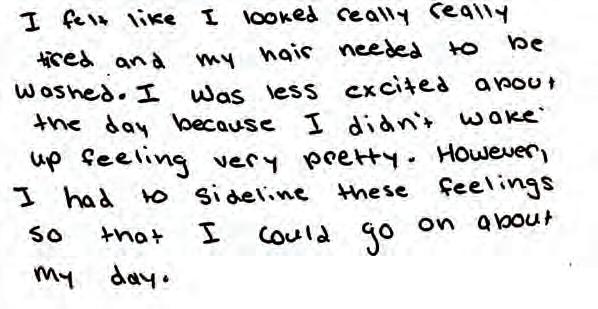 I felt like I looked really really
tired and my hair needed to be
washed. I was less excited about
the day because I didn't wake
up feeling very pretty. However,
I had to sideline these feelings
so that I could go on about
my day.